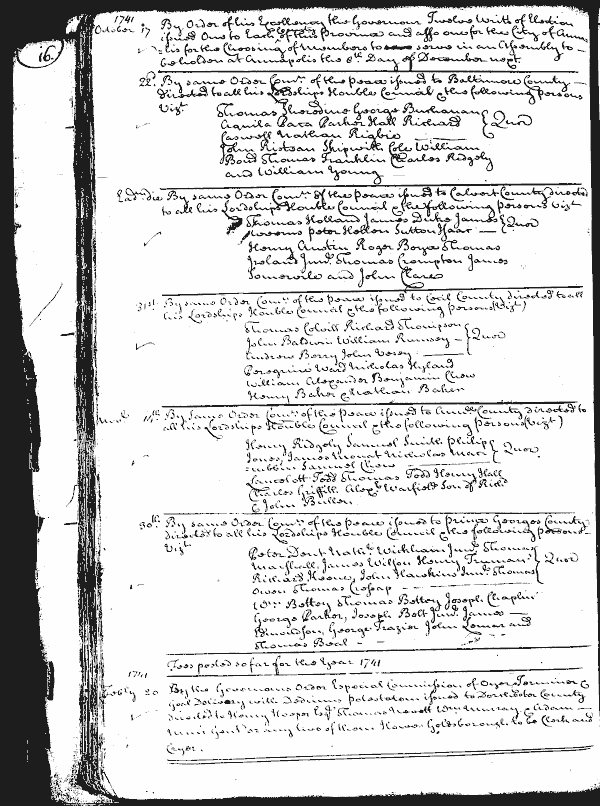 16.
1741
October 17 By Order of his Excellency the Governour Twelve Writs of Election
issued One to Each of this Province and also one for the City of Anna
lis for the Choosing of Members to serve in an Assembly to
be holden at Annapolis the 8th Day of December next.
22d. By same Order Comn. of the peace issued to Baltimore County
directed to all his Lordships Honble Council & the following persons
Vizt
Thomas Sheredine George Buchanan
Aquila Paca Parker Hall Richard
Caswell Nathan Rigbie
Quor
John Risteau Skipwith Cole William
Bond Thomas Franklin Charles Ridgely
and William Young
Ead. die By same Order Comn. of the peace issued to Calvert County directed
to all his Lordships Honble Council & the following persons Vizt
Thomas Holland James Duke James
Weems Peter Hellen Sutton Isaac
Quor
Henry Austin Roger Boyce Thomas
Ireland Junr. Thomas Crompton James
Somervile and John Clare
31st. By same Order Comn. of the peace issued to Cecil County directed to all
his Lordships Honble Council & the following persons (Vizt)
Thomas Colvill Richard Thompson
John Baldwin William Rumsey
Andrew Berry John Veasy
Quor
Peregrine Ward Nicholas Hyland
William Alexander Benjamin Chew
Henry Baker & Nathan Baker
14th By same Order Comn. of the peace issued to Anne County directed to
all his Lordships Honble Council & the following persons (Vizt)
Henry Ridgely Samuel Smith Philip
Jones, James Mouat Nicholas Mac
cubbin Samuel Chew
Quor.
Lancelott Todd Thomas Todd Henry Hall
Charles Griffith Alexr. Warfield Son of Richd
& John Bullen
30th. By same Order Comn. of the peace issued to Prince Georges County
directed to all his Lordships Honble Council & the following persons
Vizt
Peter Dent Nathl. Wickham Junr. Thomas
Marshall, James Wilson Henry Truman
Richard Keene, John Hawkins Junr. Thomas
Owen Thomas Cresap
Quor
Wm. Bettey Thomas Bettey Joseph Chaplin
George Parker, Joseph Belt Junr. James
Edmonson, George Frazier John Lemar and
Thomas Beal
Fees posted so far for the Year 1741
1741
Febry 20 By the Governours Order Especial Commission of Oyer Terminer &
Goal Delivery with Dedimus Potestatem issued to Dorchester County
directed to Henry Hooper Esqr. Thomas Nevett Wm. Murray & Adam
Muir Gent. or any two of them Howes Goldsborough to be Clerk and
Cryer.